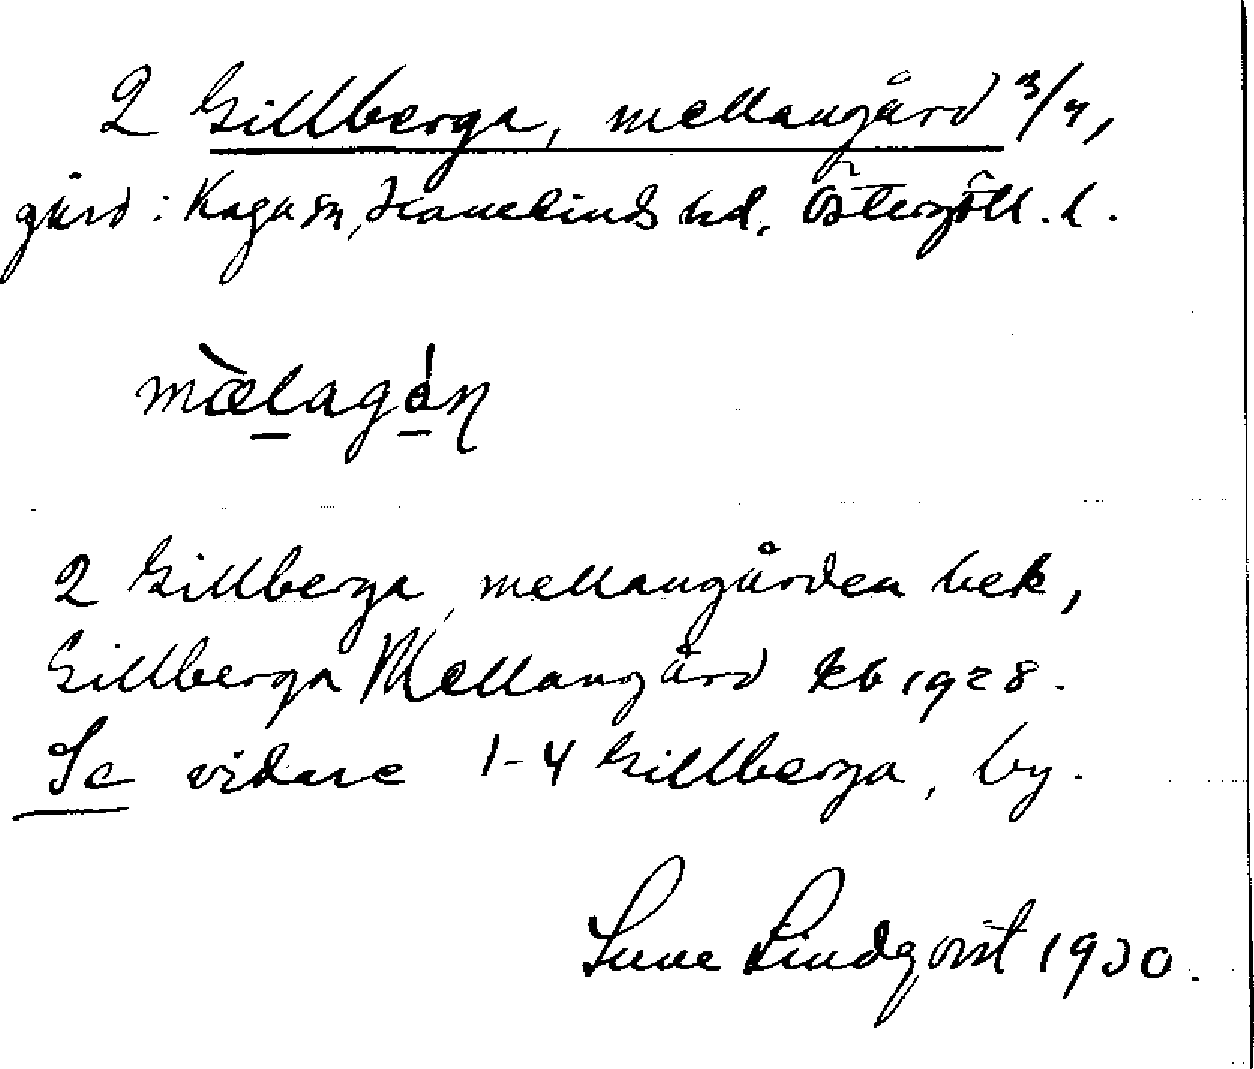 2 Gillberga, mellangård 3/4,
gård: Kaga sn, Hanekinds hd. Östergötl. l.
mæ̀lagɑ́ɳ
2 Gillberga, mellangården bek,
Gillberga Mellangård kb 1928.
Se vidare 1-4 Gillberga, by.
Sune Lindqvist 1930.